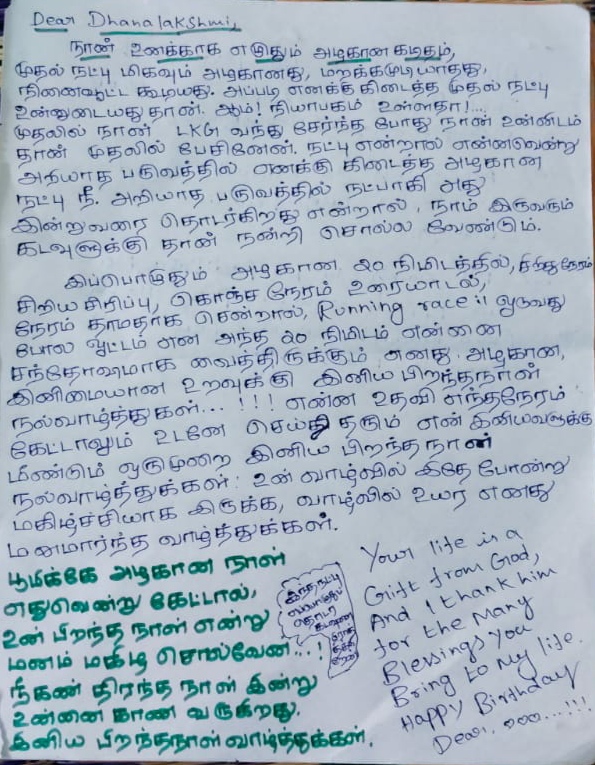 Dear Dhanalakshmi,
நான் உனக்காக எழுதும் அழகான கடிதம்,
முதல் நட்பு மிகவும் அழகானது, மறக்கமுடியாதது,
நினைவூட்ட கூடியது. அப்படி எனக்கு கிடைத்த முதல் நட்பு
உன்னுடையது தான். ஆம்! நியாபகம் உள்ளதா!...
முதலில் நான் LKG வந்து சேர்ந்த போது நான் உன்னிடம்
தான் முதலில் பேசினேன். நட்பு என்றால் என்னவென்று
அறியாத பருவத்தில் எனக்கு கிடைத்த அழகான
நட்பு நீ. அறியாத பருவத்தில் நட்பாகி அது
இன்றுவரை தொடர்கிறது என்றால், நாம் இருவரும்
கடவுளுக்கு தான் நன்றி சொல்ல வேண்டும்.
இப்பொழுதும் அழகான 20 நிமிடத்தில், சிறிது நேரம்
சிறிய சிரிப்பு, கொஞ்ச நேரம் உரையாடல்,
நேரம் தாமதாக சென்றால், Running race il ஓடுவது
போல ஓட்டம் என அந்த 20 நிமிடம் என்னை
சந்தோஷமாக வைத்திருக்கும் எனது அழகான,
இனிமையான உறவுக்கு இனிய பிறந்தநாள்
நல்வாழ்த்துகள்...!!! என்ன உதவி எந்தநேரம்
கேட்டாலும் உடனே செய்து தரும் என் இனியவளுக்கு
மீண்டும் ஒருமுறை இனிய பிறந்த நாள்
நல்வாழ்த்துக்கள். உன் வாழ்வில் இதே போன்று
மகிழ்ச்சியாக இருக்க, வாழ்வில் உயர எனது
மனமார்ந்த வாழ்த்துக்கள்.
பூமிக்கே அழகான நாள்
எதுவென்று கேட்டால்,
உன் பிறந்த நாள் என்று
மனம் மகிழ சொல்வேன்...!
நீகண் திறந்த நாள் இன்று
உன்னை காண வருகிறது.
இனிய பிறந்தநாள் வாழ்த்துக்கள்.
இந்த நட்பு
எப்பொழுதும்
தொடர
Your life is a
Giift from God,
And I thank him
for the Many
Blessings You
Bring to My life.
Happy Birthday
Dear. ooo...!!!